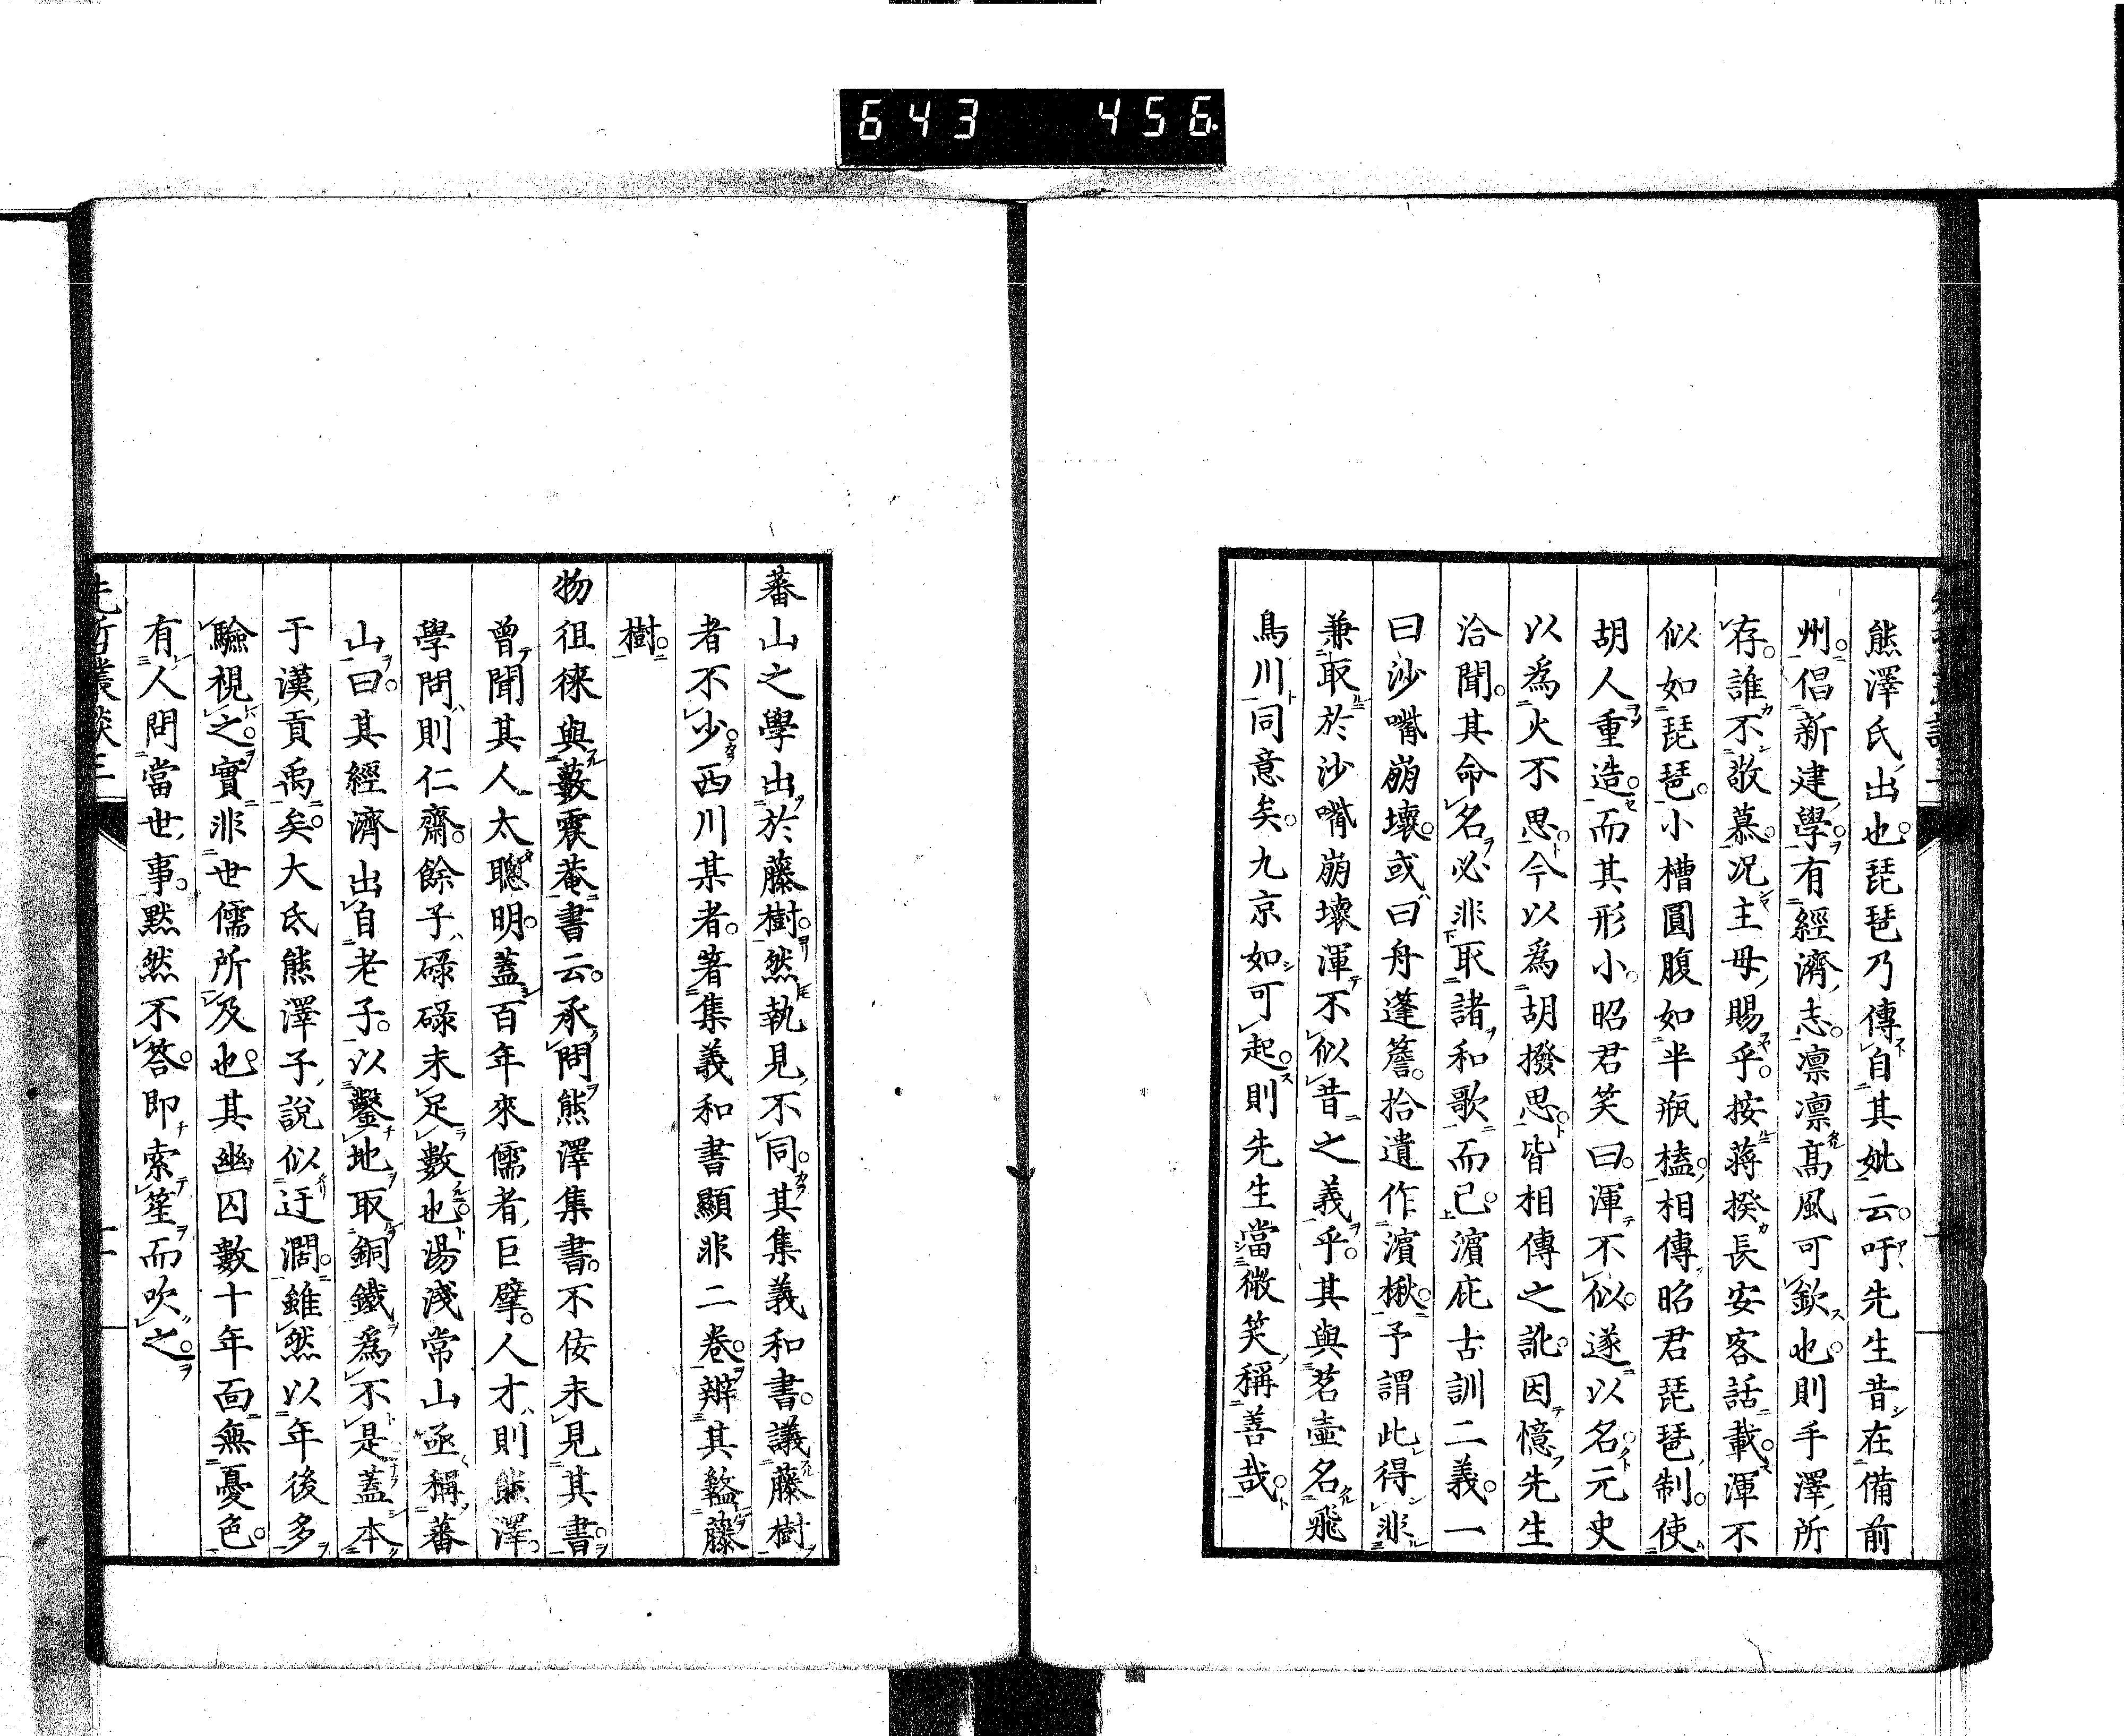 643 456
熊澤氏出也琵琶乃傳自其妣云吁先生昔在備前
州倡新建學有經濟志凛凛高風可欽也則手澤所
存誰不敬慕況主母賜乎按蔣揆長安客話載渾不
似如琵琶小槽圓腹如半瓶榼相傳昭君琵琶制使
胡人重造而其形小昭君笑曰渾不似遂以名元史
以爲火不思今以爲胡撥思皆相傳之訛因憶先生
洽聞其命名必非取諸和歌而已濵庇古訓二義一
曰沙嘴崩壞或曰舟蓬簷拾遺作濵楸予謂此得非
兼取於沙嘴崩壞渾不似昔之義乎其與茗壷名飛
鳥川同意矣九京如可起則先生當微笑稱善哉
蕃山之學出於藤樹然執見不同其集義和書議藤樹
者不少西川某者著集義和書顯非二卷辯其盭藤
樹
物徂徠與藪震菴書云承問熊澤集書不佞未見其書
曾聞其人太聰明蓋百年來儒者巨擘人才則熊澤
學問則仁齋餘子碌碌未足數也湯淺常山亟稱蕃
山曰其經濟出自老子以鑿地取銅鐵爲不是蓋本
于漢貢禹矣大氐熊澤子說似迂濶雖然以年後多
驗視之實非世儒所及也其幽囚數十年面無憂色
有人問當世事默然不答即索笙而吹之
先哲叢談三